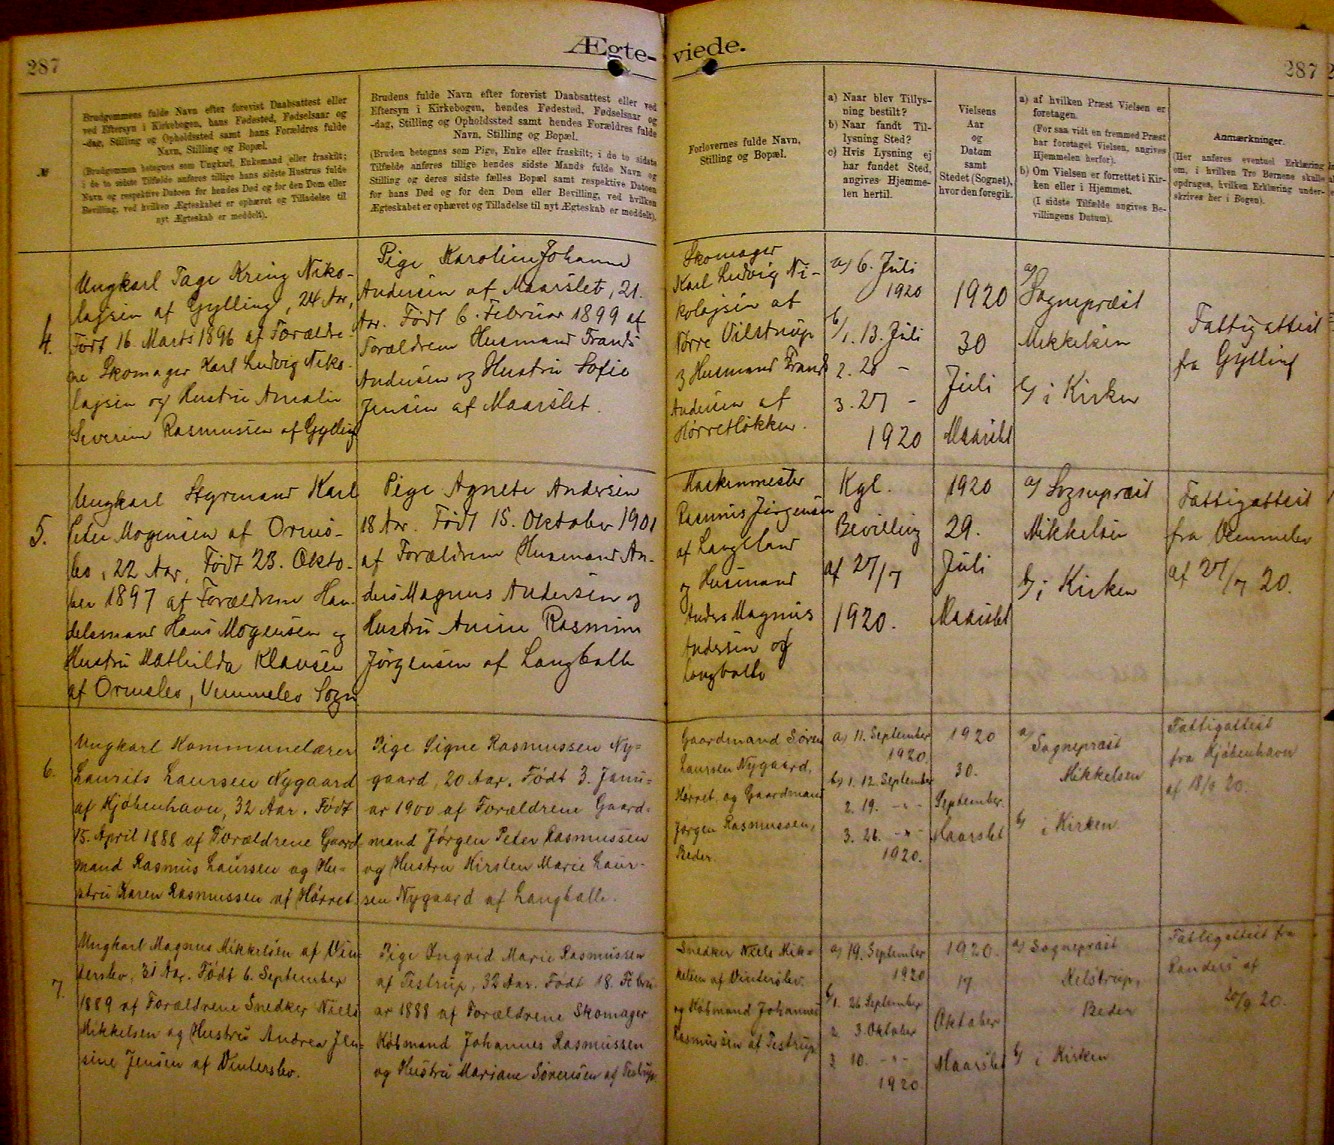 287
Ægte-
№
Brudgommens fulde Navn efter forevist Daabsattest eller
ved Eftersyn i Kirkebogen, hans Fødested, Fødselsaar og
-dag, Stilling og Opholdssted samt hans Forældres fulde
Navn, Stilling og Bopæl.
(Brudgommen betegnes som Ungkarl, Enkemand eller fraskilt;
i de to sidste Tilfælde anføres tillige hans sidste Hustrus fulde
Navn og respektive Datoen for hendes Død og for den Dom eller
Bevilling, ved hvilken Ægteskabet er ophævet og Tilladelse til
nyt Ægteskab er meddelt).
Brudens fulde Navn efter forevist Daabsattest eller ved
Eftersyn i Kirkebogen, hendes Fødested, Fødselsaar og
-dag, Stilling og Opholdssted samt hendes Forældres fulde
Navn, Stilling og Bopæl.
(Bruden betegnes som Pige, Enke eller fraskilt; i de to sidste
Tilfælde anføres tillige hendes sidste Mands fulde Navn og
Stilling og deres sidste fælles Bopæl samt respektive Datoen
for hans Død og for den Dom eller Bevilling, ved hvilken
Ægteskabet er ophævet og Tilladelse til nyt Ægteskab er meddelt).
4.
Ungkarl Tage Kring Niko-
lajsen af Gylling, 24 Aar,
Født 16. Marts 1896 af Forældre-
ne Skomager Karl Ludvig Niko-
lajsen og Hustru Amalie
Severine Rasmussen af Gylling
Pige Karoline Johanne
Andersen af Maarslet, 21.
Aar. Født 6. Februar 1899 af
Forældrene Husmand Frands
Andersen og Hustru Sofie
Jensen af Maarslet.
5.
Ungkarl Styrmand Karl
Peter Mogensen af Orms-
lev, 22 Aar, Født 23. Okto-
ber 1897 af Forældrene Han-
delsmand Hans Mogensen og
Hustru Mathilda Klausen
af Ormslev, Vemmelev Sogn
Pige Agnete Andersen
18 Aar. Født 15. Oktober 1901
af Forældrene Husmand An-
ders Magnus Andersen og
Hustru Anine Rasmine
Jørgensen af Langballe
6.
Ungkarl Kommunelærer
Laurits Laursen Nygaard
af Kjöbenhavn, 32 Aar. Født
15. April 1888 af Forældrene Gaard-
mand Rasmus Laursen og Hu-
stru Karen Rasmussen af Hörret
Pige Signe Rasmussen Ny-
gaard, 20 Aar. Født 3. Janu-
ar 1900 af Forældrene Gaard-
mand Jørgen Peter Rasmussen
og Hustru Kirsten Marie Laur-
sen Nygaard af Langballe.
7.
Ungkarl Magnus Mikkelsen af Vin-
terslev, 31 Aar. Født 6. September
1889 af Forældrene Snedker Niels
Mikkelsen og Hustru Andrea Jen-
sine Jensen af Vinterslev.
Pige Ingrid Marie Rasmussen
af Testrup, 32 Aar. Født 18. Febru-
ar 1888 af Forældrene Skomager
Købmand Johannes Rasmussen
og Hustru Mariane Sørensen af Testrup
viede.
287
Forlovernes fulde Navn,
Stilling og Bopæl.
a) Naar blev Tillys-
ning bestilt?
b) Naar fandt Til-
lysning Sted?
c) Hvis Lysning ej
har fundet Sted,
angives Hjemme-
len hertil.
Vielsens
Aar
og
Datum
samt
Stedet (Sognet),
hvor den foregik.
a) af hvilken Præst Vielsen er
foretagen.
(For saa vidt en fremmed Præst
har foretaget Vielsen, angives
Hjemmelen herfor).
b) Om Vielsen er forrettet i Kir-
ken eller i Hjemmet.
(I sidste Tilfælde angives Be-
villingens Datum).
Anmærkninger.
(Her anføres eventuel Erklæring
om, i hvilken Tro Børnene skulle
opdrages, hvilken Erklæring under-
skrives her i Bogen).
Skomager
Karl Ludvig Ni-
kolajsen af
Nörre Vilstrup
og Husmand Frands
Andersen af
Hørretløkken.
a) 6. Juli
1920
b) 1. 13. Juli
2. 20 -
3. 27 -
1920
1920
30
Juli
Maarslet
a) Sognepræst
Mikkelsen
b) i Kirken
Fattigattest
fra Gylling
Maskinmester
Rasmus Jørgensen
af Langeland
og Husmand
Anders Magnus
Andersen af
Langballe
Kgl.
Bevilling
af 27/7
1920.
1920
29.
Juli
Maarslet
a) Sognepræst
Mikkelsen
b) i Kirken
Fattigattest
fra Vemmelev
af 27/7 20.
Gaardmand Søren
Laursen Nygaard,
Hørret, og Gaardmand
Jørgen Rasmussen,
Beder.
a) 11. September
1920.
b) 1. 12. September
2. 19. -"-
3. 26. -"-
1920.
1920
30.
September.
Maarslet
a) Sognepræst
Mikkelsen
b) i Kirken
Fattigattest
fra Kjöbenhavn
af 18/9 20.
Snedker Niels Mik-
kelsen af Vinterslev
og Købmand Johannes
Rasmussen af Testrup
a) 19. September
1920
b) 1. 26 September
2. 3. Oktober
3 10. -"-
1920.
1920.
17
Oktober
Maarslet
a) Sognepræst
Beder
b) i Kirken
Fattigattest fra
Randers af
20/9 20.